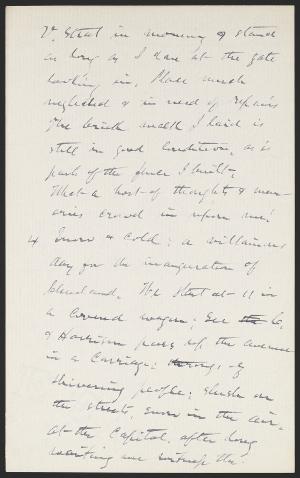 7th Street in morning & stand
as long as I dare at the gate
looking in. Place much
neglected & in need of repairs
The brick walk I laid is
still in good condition, as is
part of the fence I built.
What a host of thoughts & mem-
ories crowd in upon me!
4 Snow & cold; a villainous
day for the inauguration of
Cleveland. We start at 11 in
a covered wagon; see the C.
& Harrison pass up the avenue
in a carriage; throngs of
shivering people; slush on
the streets, snow in the air.
At the Capitol, after long
waiting we witness the